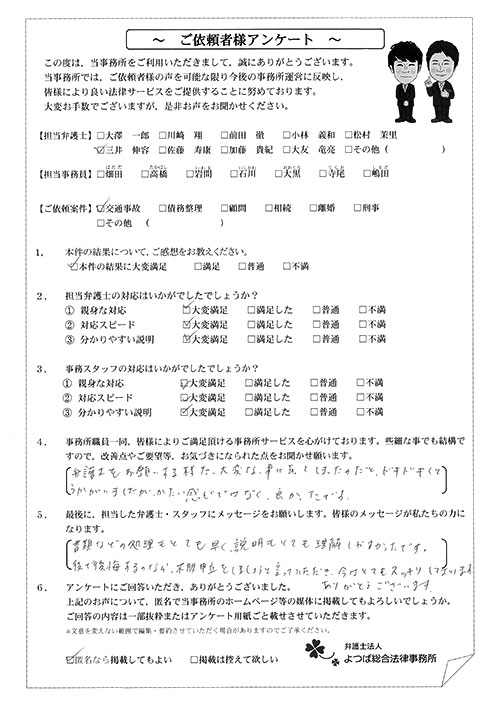 ～ ご依頼者様アンケート ～
この度は、当事務所をご利用いただきまして、誠にありがとうございます。
当事務所では、ご依頼者様の声を可能な限り今後の事務所運営に反映し、
皆様により良い法律サービスをご提供することに努めております。
大変お手数でございますが、是非お声をお聞かせください。
【担当弁護士】□大澤 一郎 □川崎 翔 □前田 徹 □小林 義和 □松村 茉里
☑三井 伸容 □佐藤 寿康 □加藤 貴紀 □大友 竜亮 □その他（ ）
【担当事務員】□畑田 □高橋 □岩間 □石川 □大黒 □寺尾 □嶋田
【ご依頼案件】☑交通事故 □債務整理 □顧問 □相続 □離婚 □刑事
□その他 （ ）
1． 本件の結果について、ご感想をお教えください。
☑本件の結果に大変満足 □満足 □普通 □不満
2． 担当弁護士の対応はいかがでしたでしょうか？
① 親身な対応 ☑大変満足 □満足した □普通 □不満
② 対応スピード ☑大変満足 □満足した □普通 □不満
③ 分かりやすい説明 ☑大変満足 □満足した □普通 □不満
3． 事務スタッフの対応はいかがでしたでしょうか？
① 親身な対応 ☑大変満足 □満足した □普通 □不満
② 対応スピード ☑大変満足 □満足した □普通 □不満
③ 分かりやすい説明 ☑大変満足 □満足した □普通 □不満
4． 事務職員一同、皆様によりご満足頂ける事務所サービスを心がけております。些細な事でも結構で
すので、改善点やご要望等、お気づきになられた点をお聞かせ願います。
弁護士をお願いする程だ、大変な事になってしまったのだと、ドキドキして
うかがいましたが、かたい感じではなく、良かったです。
5． 最後に、担当した弁護士・スタッフにメッセージをお願いします。皆様のメッセージが私たちの力に
なります。
書類などの処理もとても早く、説明もとても理解しやすかったです。
後で後悔するのなら、不服申立をしましょうと言っていただき、今はとてもスッキリしております
ありがとうございます。
6． アンケートにご回答いただき、ありがとうございました。
上記のお声について、匿名で当事務所のホームページ等の媒体に掲載してもよろしいでしょうか。
ご回答の内容は一部抜粋またはアンケート用紙ごと載せさせていただきます。
※文意を変えない範囲で編集・要約させていただく場合がありますのでご了承ください。
☑匿名なら掲載してもよい □掲載は控えて欲しい
弁護士法人
よつば総合法律事務所